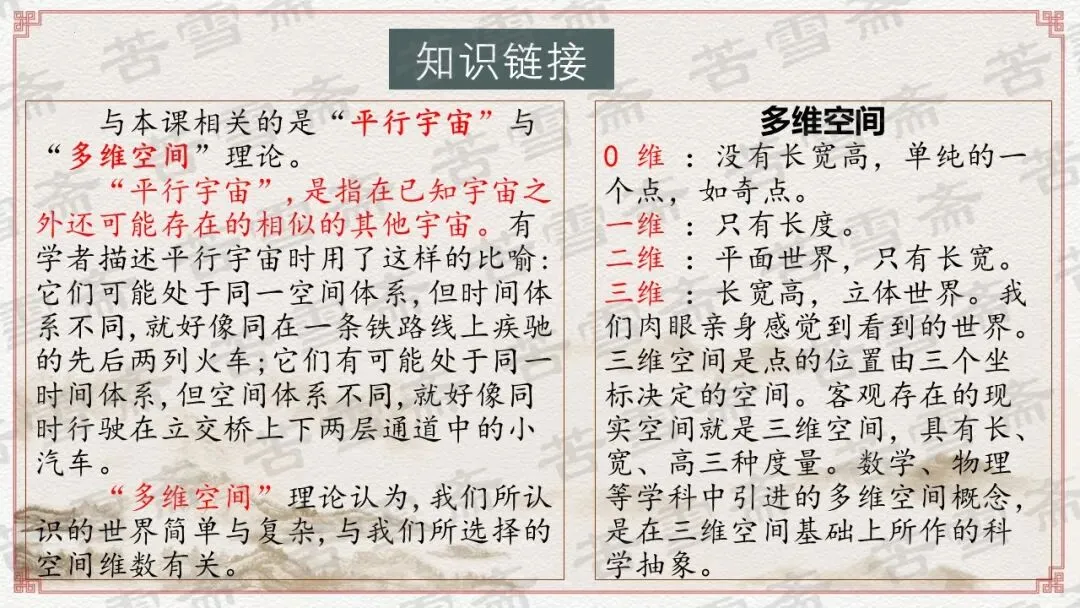 知识链接
与本课相关的是“平行宇宙”与
“多维空间”理论。
“平行宇宙”,是指在已知宇宙之
外还可能存在的相似的其他宇宙。有
学者描述平行宇宙时用了这样的比喻:
它们可能处于同一空间体系,但时间体
系不同,就好像同在一条铁路线上疾驰
的先后两列火车;它们有可能处于同一
时间体系,但空间体系不同,就好像同
时行驶在立交桥上下两层通道中的小
汽车。
“多维空间”理论认为,我们所认
识的世界简单与复杂,与我们所选择的
空间维数有关。
多维空间
0 维 ：没有长宽高，单纯的一
个点，如奇点。
一维 ：只有长度。
二维 ：平面世界，只有长宽。
三维 ：长宽高，立体世界。我
们肉眼亲身感觉到看到的世界。
三维空间是点的位置由三个坐
标决定的空间。客观存在的现
实空间就是三维空间，具有长、
宽、高三种度量。数学、物理
等学科中引进的多维空间概念，
是在三维空间基础上所作的科
学抽象。
苦雪斋